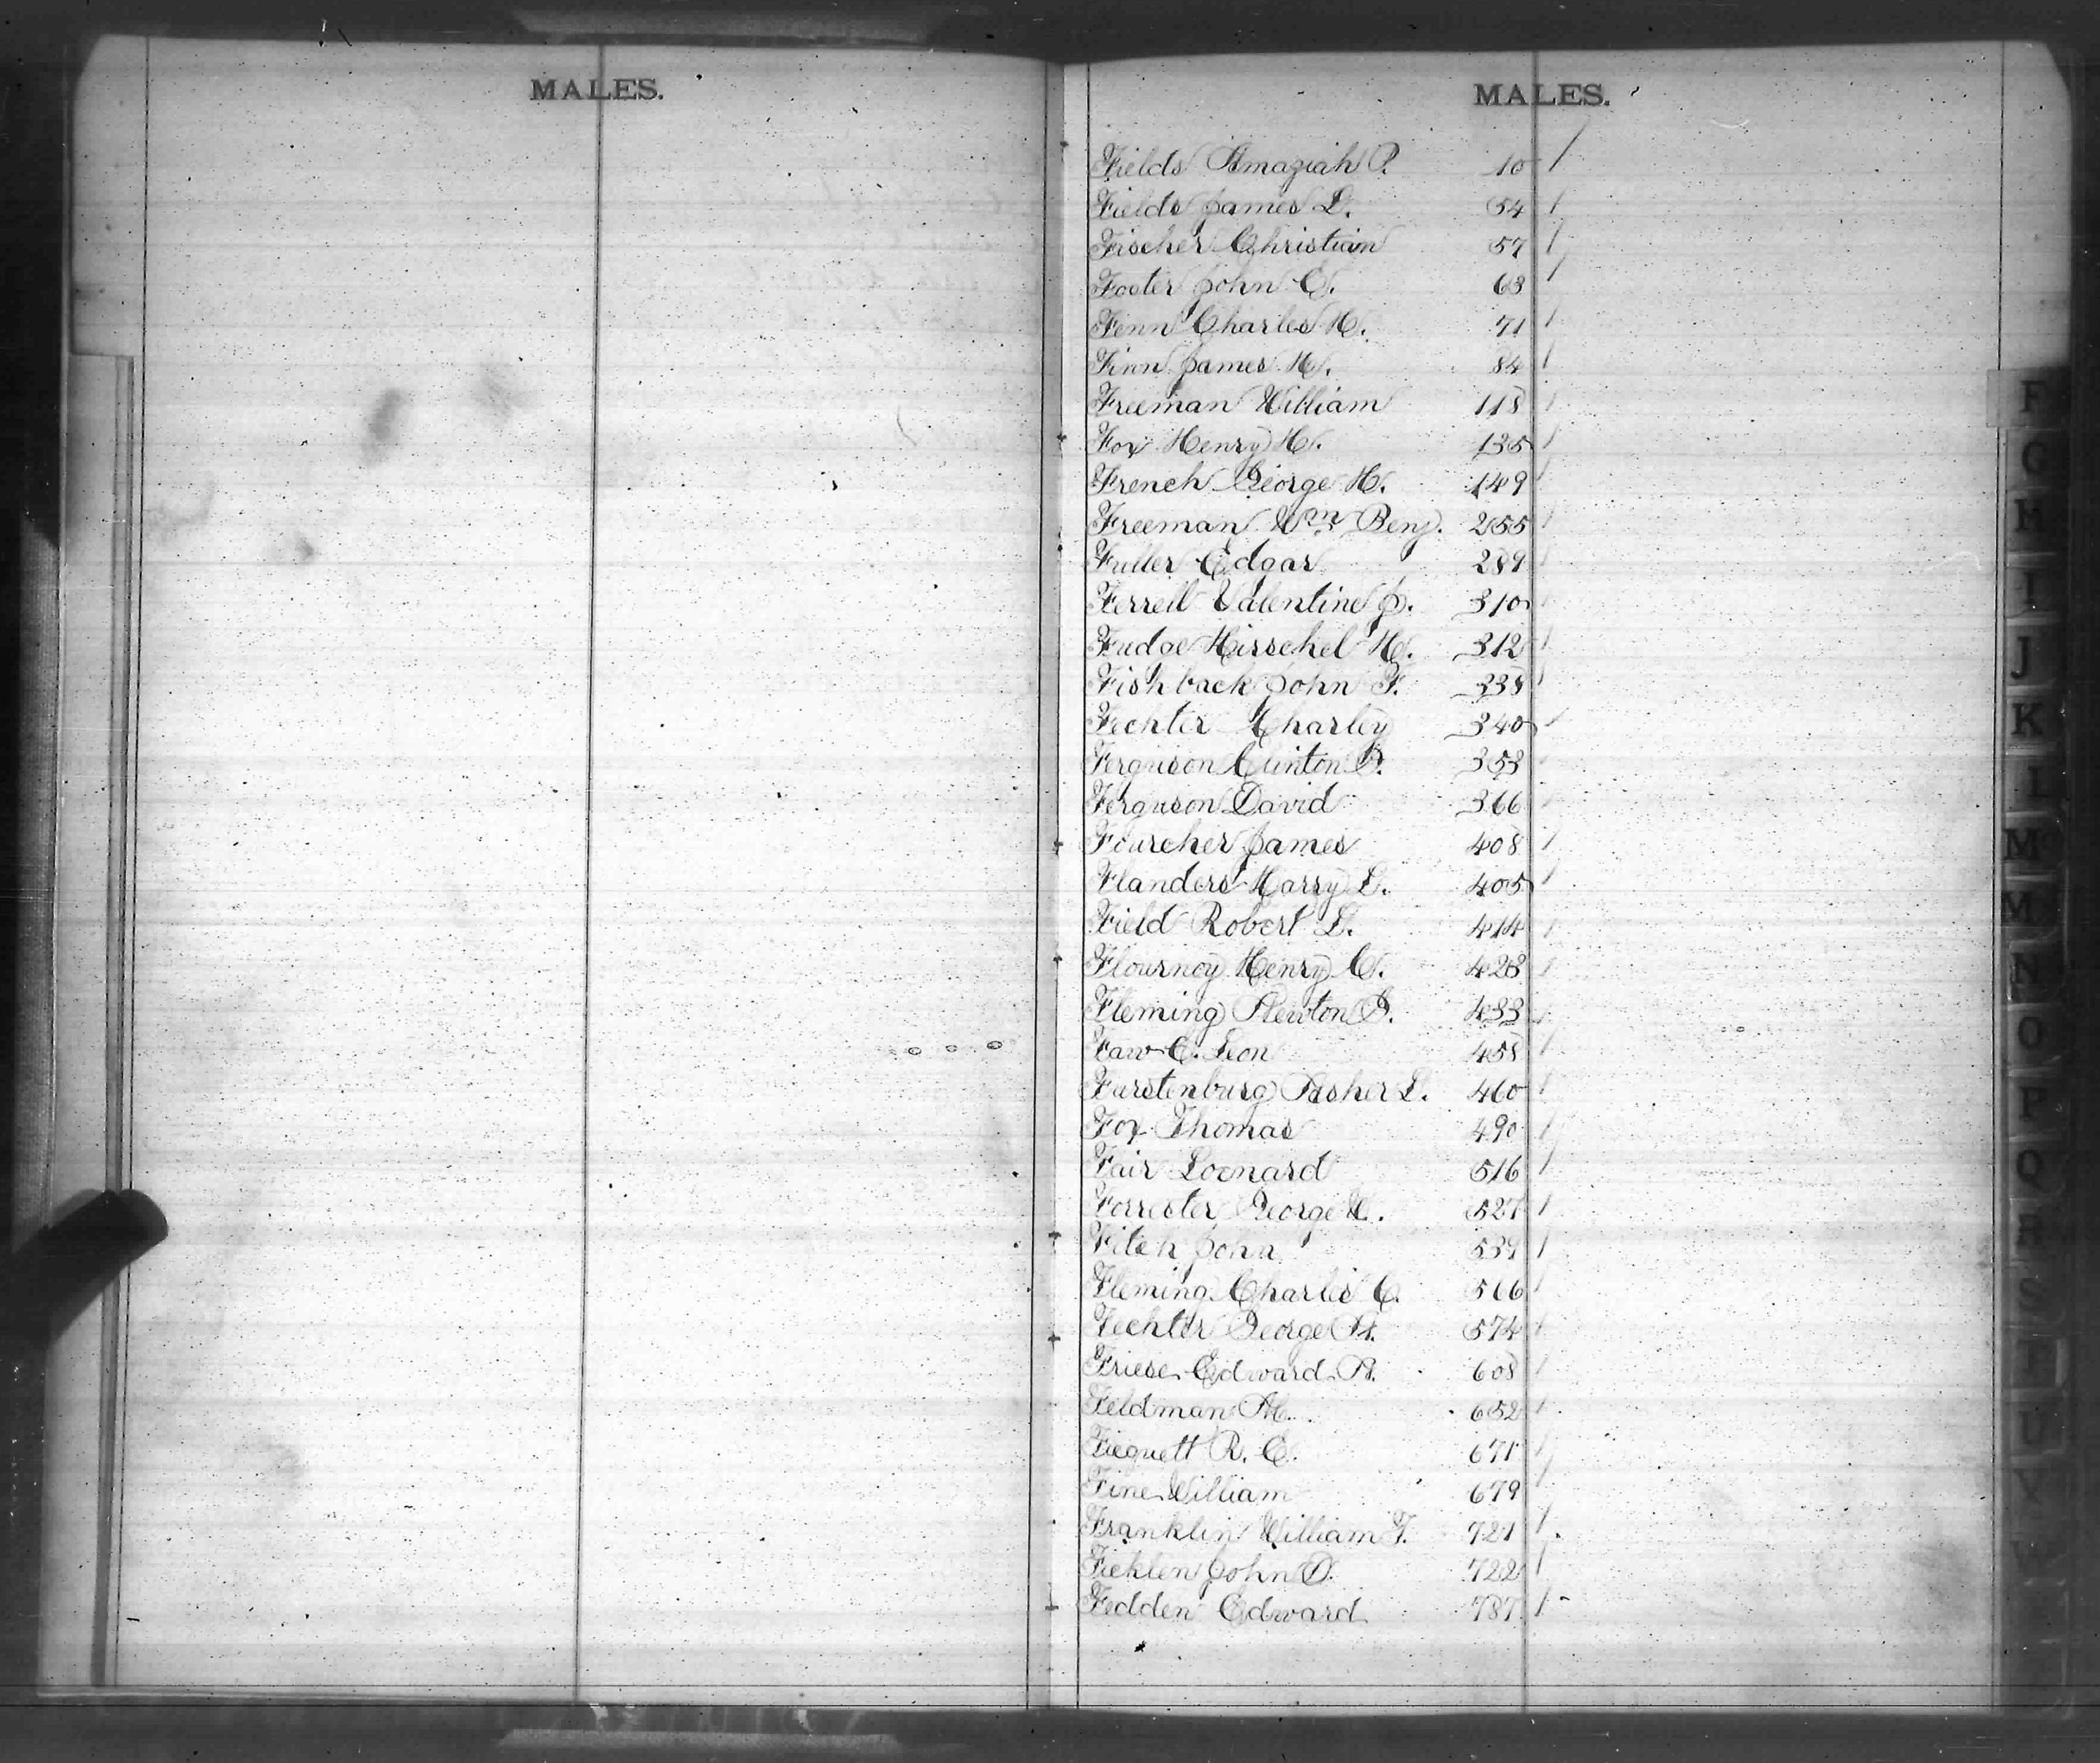 MALES.
MALES.
Fields Amaziah P. 10
Fields James L. 54
Fischer Christian 57
Foster John C. 63
Fenn Charles H. 71
Finn James H. 84
Freeman William 118
Fox Henry H. 135
French George H. 149
Freeman Wm Benj. 255
Fuller Edgar 289
Ferrell Valentine J. 310
Fudge Hirschel H. 312
Fishback John F. 338
Fechter Charley 340
Ferguson Clinton B. 353
Ferguson David 366
Fourcher James 408
Flanders Harry L. 405
Field Robert L. 414
Flournoy Henry C. 423
Fleming Newton S. 433
Faw C. Leon 458
Furstenburg Asher L. 460
Fox Thomas 490
Fair Loenard 516
Forrester George W. 527
Fitch John 539
Fleming Charles C. 566
Fechter George A. 574
Friese Edward R. 608
Feldman M. 652
Fiequett R. C. 671
Fine William 679
Franklin William F. 721
Ficklen John D. 722
Fedden Edward 787
F
G
H
I
J
K
L
Mc
M
N
O
P
Q
R
S
T
U
V